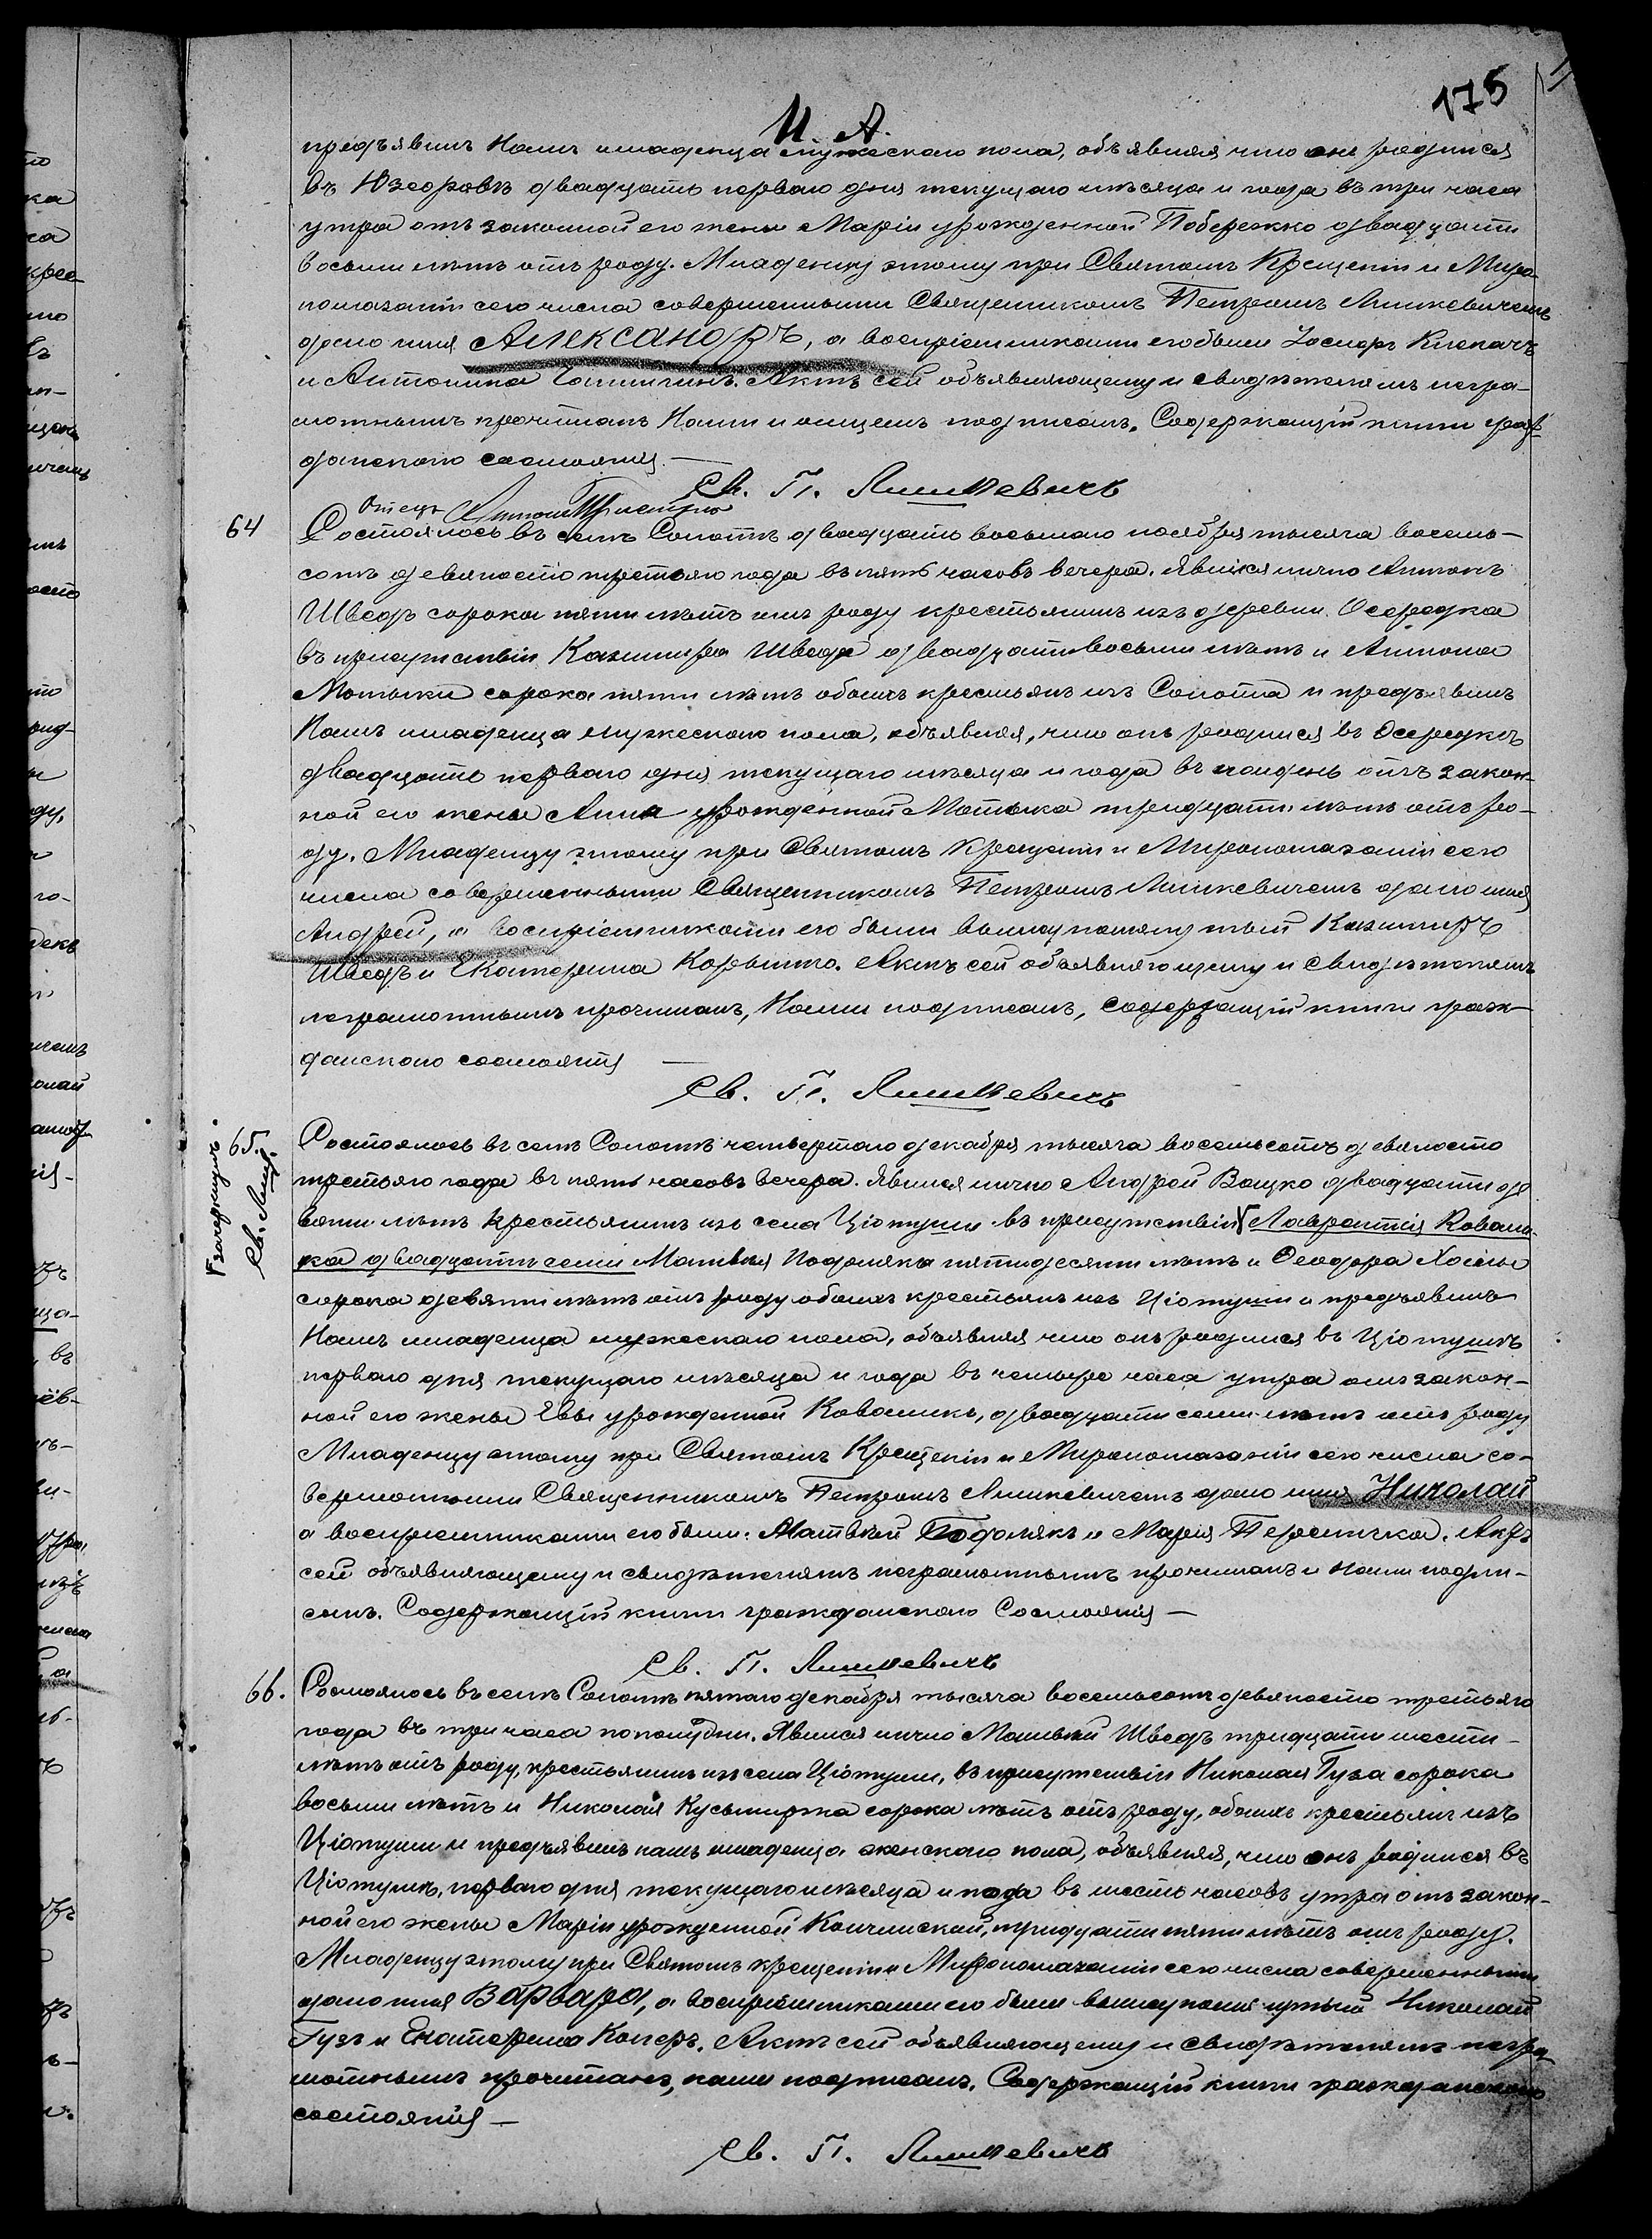 175
И. А.
предъявилъ Намъ младенца мужескаго пола, объявляя что онъ родился
въ Юзефовѣ двадцать перваго дня текущаго мѣсяца и года въ три часа
утра отъ законной его жены Маріи урожденной Побережко двадцати
восьми лѣтъ отъ роду. Младенцу этому при Святомъ Крещеніи и Муро-
помазаніи сего числа совершенными Священникомъ Петромъ Лишкевичемъ
дано имя Александръ, а воспріемниками его были Іосифъ
и Антонина Актъ сей объявляющему и свидѣтелямъ негра-
мотнымъ прочитанъ Нами и отцемъ подписанъ. Содержащій книги граж-
данскаго состоянія. —
Св. П. Лишкевичъ
Отецъ Антонъ
64 Состоялось въ селѣ Сопотѣ двадцать восьмаго ноября тысяча восемь-
сотъ девяносто третьяго года въ пять часовъ вечера. Явился лично Антонъ
Шведъ сорока пяти лѣтъ отъ роду крестьянинъ изъ деревни Осередка
въ присутствіи Казимира Шведа двадцати восьми лѣтъ и Антона
Мотыки сорока пяти лѣтъ обоихъ крестьянъ изъ Сопота и предъявилъ
Намъ младенца мужескаго пола, объявляя, что онъ родился въ Осередкѣ
двадцать перваго дня текущаго мѣсяца и года въ полдень отъ закон-
ной его жены Анны урожденной Мотыка тридцати лѣтъ отъ ро-
ду. Младенцу этому при Святомъ Крещеніи и Миропомазаніи сего
числа совершенными Священникомъ Петромъ Лишкевичемъ дано имя
Андрей, а воспріемниками его были вышеупомянутый Казимиръ
Шведъ и Екатерина Корытко. Актъ сей объявляющему и свидѣтелямъ
неграмотнымъ прочитанъ, Нами подписанъ, Содержащій книги граж-
данскаго состоянія —
Св. П. Лишкевичъ
65. Состоялось въ селѣ Сопотѣ четвертаго декабря тысяча восемьсотъ девяносто
третьяго года въ пять часовъ вечера. Явился лично Андрей Вацко двадцати де
вяти лѣтъ крестьянинъ изъ села Ціотуши въ присутствіи Лаврентія Ковали-
ка двадцати семи Матвѣя Подоляка пятидесяти лѣтъ и Ѳеодора
сорока девяти лѣтъ отъ роду обоихъ крестьянъ изъ Ціотуши и предъявилъ
Намъ младенца мужескаго пола, объявляя что онъ родился въ Ціотушѣ
перваго дня текущаго мѣсяца и года въ четыре часа утра отъ закон-
ной его жены Евы урожденной Коваликъ, двадцати семи лѣтъ отъ роду
Младенцу этому при Святомъ Крещеніи и Миропомазаніи сего числа со-
вершенными Священникомъ Петромъ Лишкевичемъ дано имя Николай
а воспріемниками его были: Матвѣй Подолякъ и Марія Пересичка. Актъ
сей объявляющему и свидѣтелямъ неграмотнымъ прочитанъ и Нами подпи-
санъ. Содержащій книги гражданскаго Состоянія —
Св. П. Лишкевичъ
66. Состоялось въ селѣ Сопотѣ пятаго декабря тысяча восемьсотъ девяносто третьяго
года въ три часа пополудни. Явился лично Матвѣй Шведъ тридцати шести
лѣтъ отъ роду, крестьянинъ изъ села Ціотуши, въ присутствіи Николая Гуза сорока
восьми лѣтъ и Николая Кусьмирка сорока лѣтъ отъ роду, обоихъ крестьянъ изъ
Ціотуши и предъявилъ намъ младенца женскаго пола, объявляя, что онъ родился въ
Ціотушѣ, перваго дня текущаго мѣсяца и года въ шесть часовъ утра отъ закон-
ной его жены Маріи урожденной тридцати пяти лѣтъ отъ роду.
Младенцу этому при Святомъ крещеніи и Миропомазаніи сего числа совершенными
дано имя Варвара, а воспріемниками его были вышеупомянутый Николай
Гузъ и Екатерина Коперъ. Актъ сей объявляющему и свидѣтелямъ негра-
мотнымъ прочитанъ, нами подписанъ. Содержащій книги гражданскаго
состоянія —
Св. П. Лишкевичъ